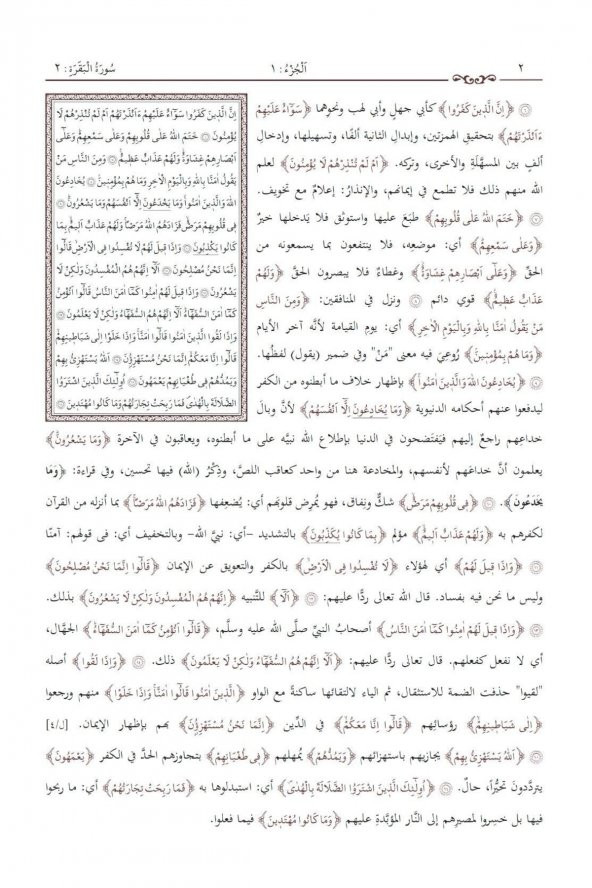 ٢ اَلْجُزْءُ : ١ سُورَةُ الْبَقَرَةِ : ٢
اِنَّ الَّذ۪ينَ كَفَرُوا سَوَٓاءٌ عَلَيْهِمْ ءَاَنْذَرْتَهُمْ اَمْ لَمْ تُنْذِرْهُمْ لَا
يُؤْمِنُونَ ۞ خَتَمَ اللّٰهُ عَلٰى قُلُوبِهِمْ وَعَلٰى سَمْعِهِمْ وَعَلٰٓى
اَبْصَارِهِمْ غِشَاوَةٌ وَلَهُمْ عَذَابٌ عَظ۪يمٌ ۞ وَمِنَ النَّاسِ مَنْ
يَقُولُ اٰمَنَّا بِاللّٰهِ وَبِالْيَوْمِ الْاٰخِرِ وَمَا هُمْ بِمُؤْمِن۪ينَ ۞ يُخَادِعُونَ
اللّٰهَ وَالَّذ۪ينَ اٰمَنُوا وَمَا يَخْدَعُونَ اِلَّٓا اَنْفُسَهُمْ وَمَا يَشْعُرُونَ ۞
ف۪ى قُلُوبِهِمْ مَرَضٌ فَزَادَهُمُ اللّٰهُ مَرَضًا وَلَهُمْ عَذَابٌ اَل۪يمٌ بِمَا
كَانُوا يَكْذِبُونَ ۞ وَاِذَا ق۪يلَ لَهُمْ لَا تُفْسِدُوا فِى الْاَرْضِ قَالُٓوا
اِنَّمَا نَحْنُ مُصْلِحُونَ ۞ اَلَٓا اِنَّهُمْ هُمُ الْمُفْسِدُونَ وَلٰكِنْ لَا
يَشْعُرُونَ ۞ وَاِذَا ق۪يلَ لَهُمْ اٰمِنُوا كَمَٓا اٰمَنَ النَّاسُ قَالُٓوا اَنُؤْمِنُ
كَمَٓا اٰمَنَ السُّفَهَٓاءُ اَلَٓا اِنَّهُمْ هُمُ السُّفَهَٓاءُ وَلٰكِنْ لَا يَعْلَمُونَ ۞
وَاِذَا لَقُوا الَّذ۪ينَ اٰمَنُوا قَالُٓوا اٰمَنَّا وَاِذَا خَلَوْا اِلٰى شَيَاط۪ينِهِمْ
قَالُٓوا اِنَّا مَعَكُمْ اِنَّمَا نَحْنُ مُسْتَهْزِؤُ۫نَ ۞ اَللّٰهُ يَسْتَهْزِئُ بِهِمْ
وَيَمُدُّهُمْ ف۪ى طُغْيَانِهِمْ يَعْمَهُونَ ۞ اُو۬لٰٓئِكَ الَّذ۪ينَ اشْتَرَوُا
الضَّلَالَةَ بِالْهُدٰى فَمَا رَبِحَتْ تِجَارَتُهُمْ وَمَا كَانُوا مُهْتَد۪ينَ ۞
﴿اِنَّ الَّذ۪ينَ كَفَرُوا﴾ كأبي جهلٍ وأبي لهب ونحوهما ﴿سَوَٓاءٌ عَلَيْهِمْ
ءَاَنْذَرْتَهُمْ﴾ بتحقيق الهمزتين، وإبدال الثانية ألفًا، وتسهيلها، وإدخالِ
ألفٍ بين المسهَّلة والأخرى، وتركه. ﴿اَمْ لَمْ تُنْذِرْهُمْ لَا يُؤْمِنُونَ﴾ لعلم
الله منهم ذلك فلا تطمع في إيمانهم، والإنذارُ: إعلامٌ مع تخويف.
﴿خَتَمَ اللّٰهُ عَلٰى قُلُوبِهِمْ﴾ طبَع عليها واستوثق فلا يَدخلها خيرٌ
﴿وَعَلٰى سَمْعِهِمْ﴾ أي: موضعِه، فلا ينتفعون بما يسمعونه من
الحقّ ﴿وَعَلٰٓى اَبْصَارِهِمْ غِشَاوَةٌ﴾ وغطاءٌ فلا يبصرون الحقَّ ﴿وَلَهُمْ
عَذَابٌ عَظ۪يمٌ﴾ قوي دائم ۞ ونزل في المنافقين: ﴿وَمِنَ النَّاسِ
مَنْ يَقُولُ اٰمَنَّا بِاللّٰهِ وَبِالْيَوْمِ الْاٰخِرِ﴾ أي: يومِ القيامة لأنَّه آخر الأيام
﴿وَمَا هُمْ بِمُؤْمِن۪ينَ﴾ رُوعِيَ فيه معنى "مَنْ" وفي ضمير (يقول) لفظُها.
﴿يُخَادِعُونَ اللّٰهَ وَالَّذ۪ينَ اٰمَنُوا﴾ بإظهار خلاف ما أبطنوه من الكفر
ليدفعوا عنهم أحكامه الدنيوية ﴿وَمَا يُخَادِعُونَ اِلَّٓا اَنْفُسَهُمْ﴾ لأنَّ وبالَ
خداعِهم راجعٌ إليهم فيَفتَضحون في الدنيا بإطلاع الله نبيَّه على ما أبطنوه، ويعاقبون في الآخرة ﴿وَمَا يَشْعُرُونَ﴾
يعلمون أنَّ خداعَهم لأنفسهم، والمخادعة هنا من واحد كعاقب اللصَّ، وذِكْرُ (الله) فيها تحسين، وفي قراءة: ﴿وَمَا
يَخْدَعُونَ﴾. ﴿ف۪ى قُلُوبِهِمْ مَرَضٌ﴾ شكٌّ ونِفاق، فهو يُمرِض قلوبَهم أي: يُضعِفها ﴿فَزَادَهُمُ اللّٰهُ مَرَضًا﴾ بما أنزله من القرآن
لكفرهم به ﴿وَلَهُمْ عَذَابٌ اَل۪يمٌ﴾ مؤلم ﴿بِمَا كَانُوا يُكَذِّبُونَ﴾ بالتشديد -أي: نبيَّ الله- وبالتخفيف أي: في قولهم: آمنّا
﴿وَاِذَا ق۪يلَ لَهُمْ﴾ أي هؤلاء ﴿لَا تُفْسِدُوا فِى الْاَرْضِ﴾ بالكفر والتعويق عن الإيمان ﴿قَالُٓوا اِنَّمَا نَحْنُ مُصْلِحُونَ﴾
وليس ما نحن فيه بفساد. قال الله تعالى ردًّا عليهم: ﴿اَلَٓا﴾ للتَّنبيه ﴿اِنَّهُمْ هُمُ الْمُفْسِدُونَ وَلٰكِنْ لَا يَشْعُرُونَ﴾ بذلك.
﴿وَاِذَا ق۪يلَ لَهُمْ اٰمِنُوا كَمَٓا اٰمَنَ النَّاسُ﴾ أصحابُ النبيّ صلَّى الله عليه وسلَّم، ﴿قَالُٓوا اَنُؤْمِنُ كَمَٓا اٰمَنَ السُّفَهَٓاءُ﴾ الجهَّال،
أي لا نفعل كفعلهم. قال تعالى ردًّا عليهم: ﴿اَلَٓا اِنَّهُمْ هُمُ السُّفَهَٓاءُ وَلٰكِنْ لَا يَعْلَمُونَ﴾ ذلك. ﴿وَاِذَا لَقُوا﴾ أصله
"لقيوا" حذفت الضمة للاستثقال، ثم الياء لالتقائها ساكنةً مع الواو ﴿الَّذ۪ينَ اٰمَنُوا قَالُٓوا اٰمَنَّا وَاِذَا خَلَوْا﴾ منهم ورجعوا
﴿اِلٰى شَيَاط۪ينِهِمْ﴾ رؤسائِهم ﴿قَالُٓوا اِنَّا مَعَكُمْ﴾ في الدِّين ﴿اِنَّمَا نَحْنُ مُسْتَهْزِؤُ۫نَ﴾ بهم بإظهار الإيمان. [ل/٤]
﴿اَللّٰهُ يَسْتَهْزِئُ بِهِمْ﴾ يجازيهم باستهزائهم ﴿وَيَمُدُّهُمْ﴾ يُمهلهم ﴿ف۪ى طُغْيَانِهِمْ﴾ بتجاوزهم الحدَّ في الكفر ﴿يَعْمَهُونَ﴾
يتردَّدون تحيُّرًا، حالٌ. ﴿اُو۬لٰٓئِكَ الَّذ۪ينَ اشْتَرَوُا الضَّلَالَةَ بِالْهُدٰى﴾ أي: استبدلوها به ﴿فَمَا رَبِحَتْ تِجَارَتُهُمْ﴾ أي: ما ربحوا
فيها بل خسِروا لمصيرهم إلى النَّار المؤبَّدةِ عليهم ﴿وَمَا كَانُوا مُهْتَد۪ينَ﴾ فيما فعلوا.